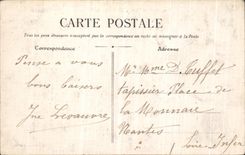 CARTE POSTALE
Tous les pays étrangers n'acceptent pas la correspondance au recto se renseigner à la Poste
Correspondance
Adresse
Pense a vous
bons baisers
Mr Mme D. Tuffet
tapissier Place de
la Monnaie
Nantes
Loire Infer